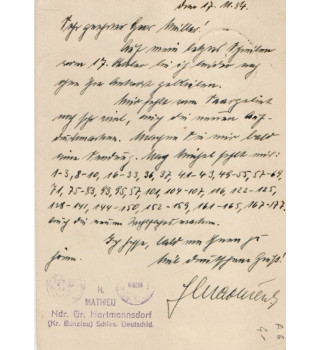 den 17. 11. 34.
Sehr geehrter Herr Müller!
Auf mein letztes Schreiben
vom 17. Oktober bin ich leider
ohne Ihre Antwort geblieben.
Mir fehlt vom Saargebiet
noch sehr viel, auch die neuen
Machen Sie mir bald
eine Sendung. Nach Michel fehlt mir:
1-3, 8-10, 16-33, 36, 37, 41-43, 49-55, 57-69,
71, 75-83, 93, 95, 57, 101, 104-107, 116, 122-125,
128-141, 144-150, 152-159, 161-165, 167-177.
auch die neuen
Ich hoffe, bald von Ihnen zu
hören.
Mit deutschem Gruß!
H.
MATHIEU
Ndr. Gr. Hartmannsdorf
(Kr. Bunzlau) Schles. Deutschld.